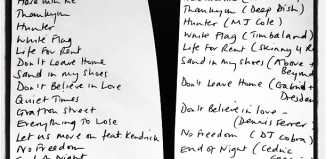 Here With Me
Thankyou
Hunter
White Flag
Life For Rent
Don't Leave Home
Sand in my Shoes
Don't Believe in Love
Quiet Times
Grafton Street
Everything To Lose
Let us move on feat Kendrick
No Freedom
End of Night
Thankyou (Deep Dish)
Hunter (MJ Cole)
White Flag (Timbaland)
Life For Rent (Skinny 4 Re
Sand in my Shoes (Above +
Beyond
Don't Leave Home (Gabriel +
Dresden
Don't Believe in love -
(Dennis Ferrer
No Freedom (DJ Cobra)
End of Night (Cedric